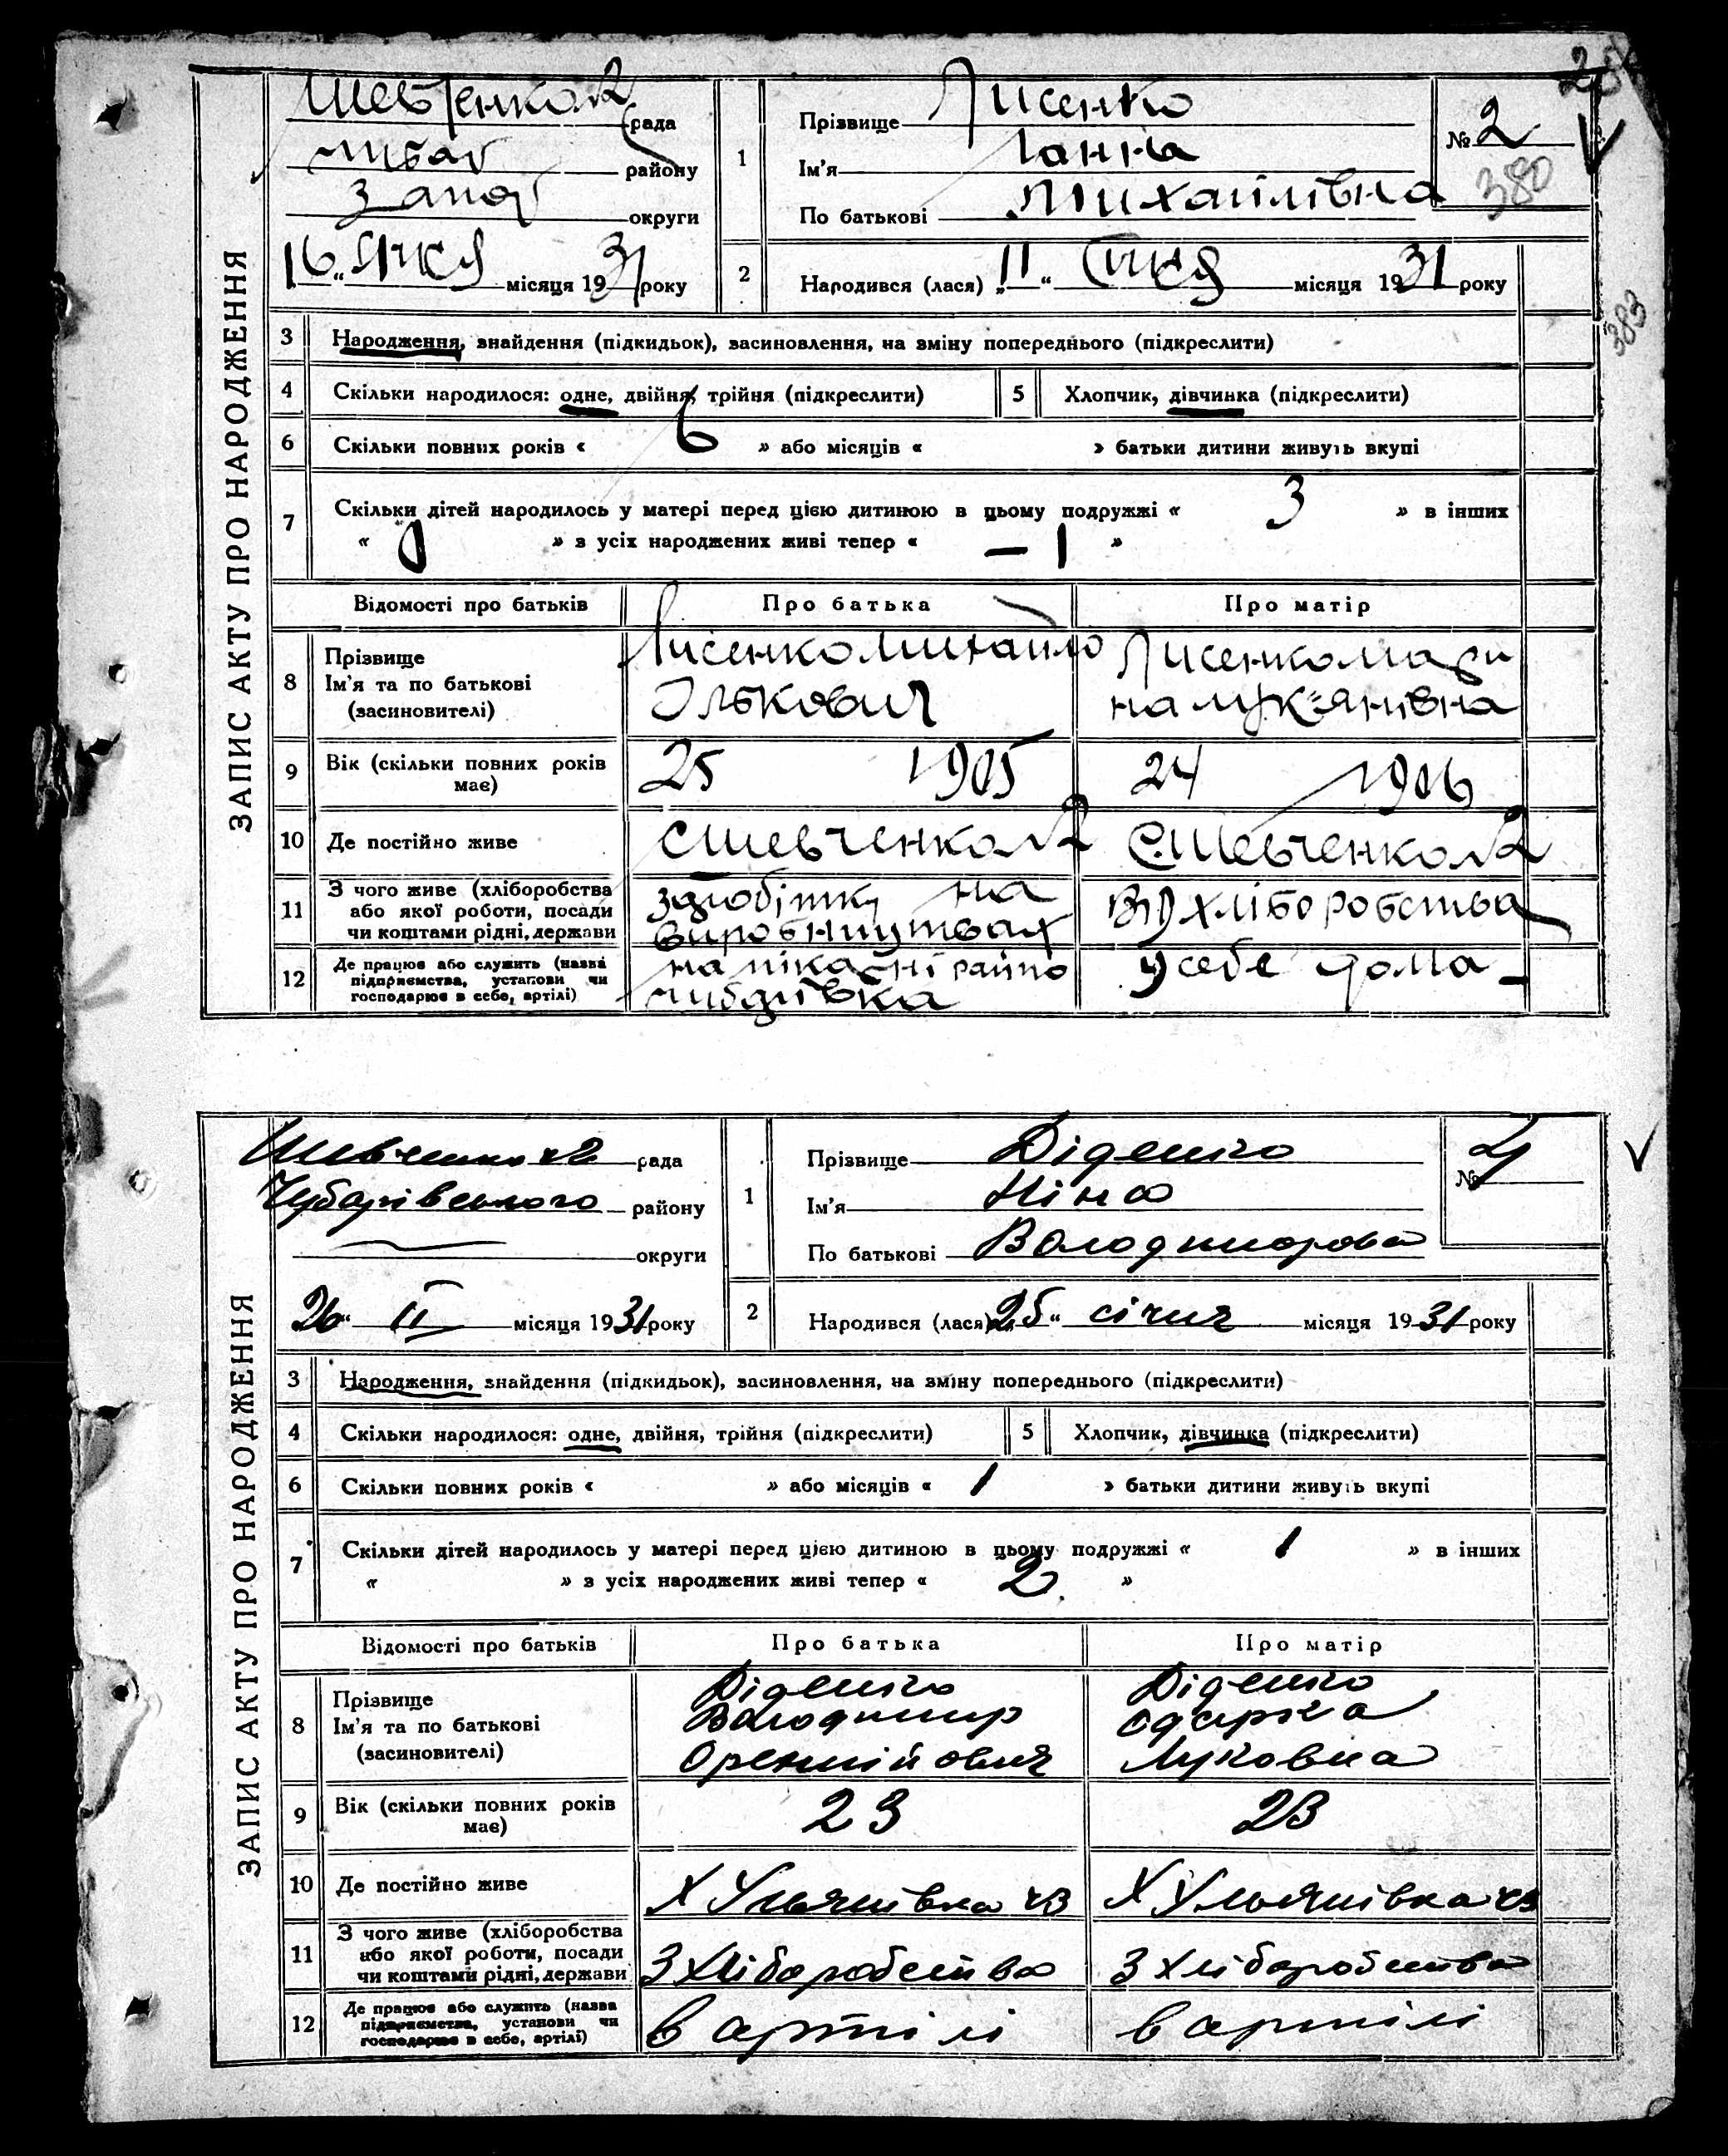 ЗАПИС АКТУ ПРО НАРОДЖЕННЯ
рада
району
округи
16 " січня місяця 1931 року
1
Прізвище Лисенко
Ім'я Ганна
По батькові Михайлівна
№ 2
380
383
2 Народився (лася) „11“ січня місяця 1931 року
3 Народження, знайдення (підкидьок), засиновлення, на зміну попереднього (підкреслити)
4 Скільки народилося: одне, двійня, трійня (підкреслити) 5 Хлопчик, дівчинка (підкреслити)
6 Скільки повних років « 6 » або місяців « » батьки дитини живуть вкупі
7 Скільки дітей народилось у матері перед цією дитиною в цьому подружжі « 3 » в інших
« 0 » з усіх народжених живі тепер « – 1 »
Відомості про батьків Про батька Про матір
8 Прізвище
Ім'я та по батькові
(засиновителі)
Лисенко Михайло
Ількович
Лисенко Мари
на Лукʼянівна
9 Вік (скільки повних років
має)
25 1905
24 1906
10 Де постійно живе
с Шевченко №2
с. Шевченко №2
11 З чого живе (хліборобства
або якої роботи, посади
чи коштами рідні, держави
на
виробництвах
Від хліборобства
12 Де працює або служить (назва
підприємства, установи чи
господарює в себе, артілі)
на пікарні райпо
у себе дома –
ЗАПИС АКТУ ПРО НАРОДЖЕННЯ
Шевченко №2 рада
Чубарівського району
округи
26 " II місяця 1931 року
1
Прізвище Діденко
Ім'я Ніна
По батькові Володимирова
№ 4
2 Народився (лася) „25“ січня місяця 1931 року
3 Народження, знайдення (підкидьок), засиновлення, на зміну попереднього (підкреслити)
4 Скільки народилося: одне, двійня, трійня (підкреслити) 5 Хлопчик, дівчинка (підкреслити)
6 Скільки повних років « » або місяців « 1 » батьки дитини живуть вкупі
7 Скільки дітей народилось у матері перед цією дитиною в цьому подружжі « 1 » в інших
« » з усіх народжених живі тепер « 2 »
Відомості про батьків Про батька Про матір
8 Прізвище
Ім'я та по батькові
(засиновителі)
Діденко
Володимир
Діденко
Одарка
Луковна
9 Вік (скільки повних років
має)
23
23
10 Де постійно живе
Х Ульянівка
Х Ульянівка
11 З чого живе (хліборобства
або якої роботи, посади
чи коштами рідні, держави
З хліборобства
З хліборобства
12 Де працює або служить (назва
підприємства, установи чи
господарює в себе, артілі)
в артілі
в артілі